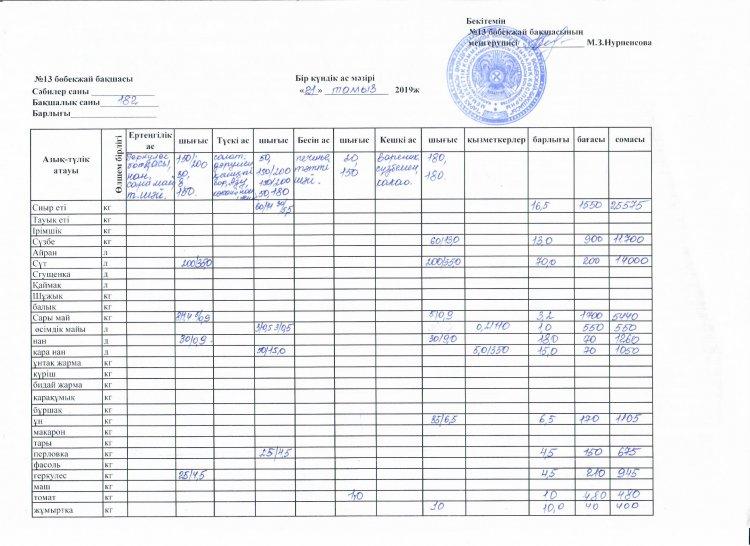 Бекітемін
№13 бөбекжай бақшасының
меңгерушісі М.З.Нурпеисова
№13 бөбекжай бақшасы
Сәбилер саны
Бақшалық саны 182
Барлығы
Бір күндік ас мәзірі
«21» тамыз 2019ж
Азық-түлік атауы Өлшем бірлігі Ертеңгілік ас шығыс Түскі ас шығыс Бесін ас шығыс Кешкі ас шығыс қызметкерлер барлығы бағасы сомасы
Геркулес ботқасы, нан, сары май, т.шәй. салат. печенье, тәтті шәй. 20, 150 180, 180. какао.
Сиыр еті кг 16,5 1550 25575
Тауық еті кг
Ірімшік кг
Сүзбе кг 60/130 13,0 900 11700
Айран л
Сүт л 200/350 200/350 70,0 200 14000
Сгущенка л
Қаймақ л
Шұжық кг
балық кг
Сары май кг 5/0,9 3,2 1700 5440
өсімдік майы л 3/0,5 3/0,5 1,0 550 550
нан кг 30/9,0 70 1260
қара нан кг 5,0/350 15,0 70 1050
ұнтақ жарма кг
күріш кг
бидай жарма кг
қарақұмық кг
бұршақ кг
ұн кг 35/6,5 6,5 170 1105
макарон кг
тары кг
перловка кг 25/4,5 4,5 150 675
фасоль кг
геркулес кг 25/4,5 4,5 210 945
маш кг
томат кг 1,0 1,0 480 480
жұмыртқа кг 10 10,0 40 400